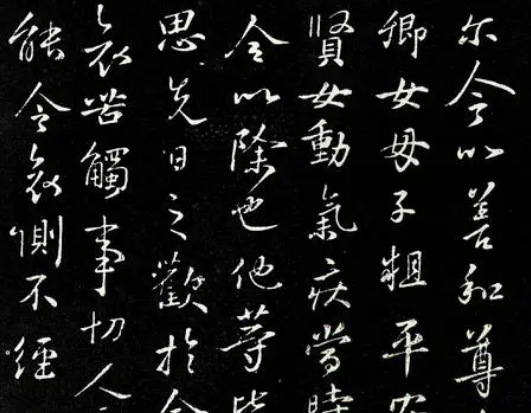 尔今以善和尊
卿女母子粗平安
賢女動氣疾當時
今以除也他等皆
思先日之歡於今
哀苦觸事切人
能令哀惻不經